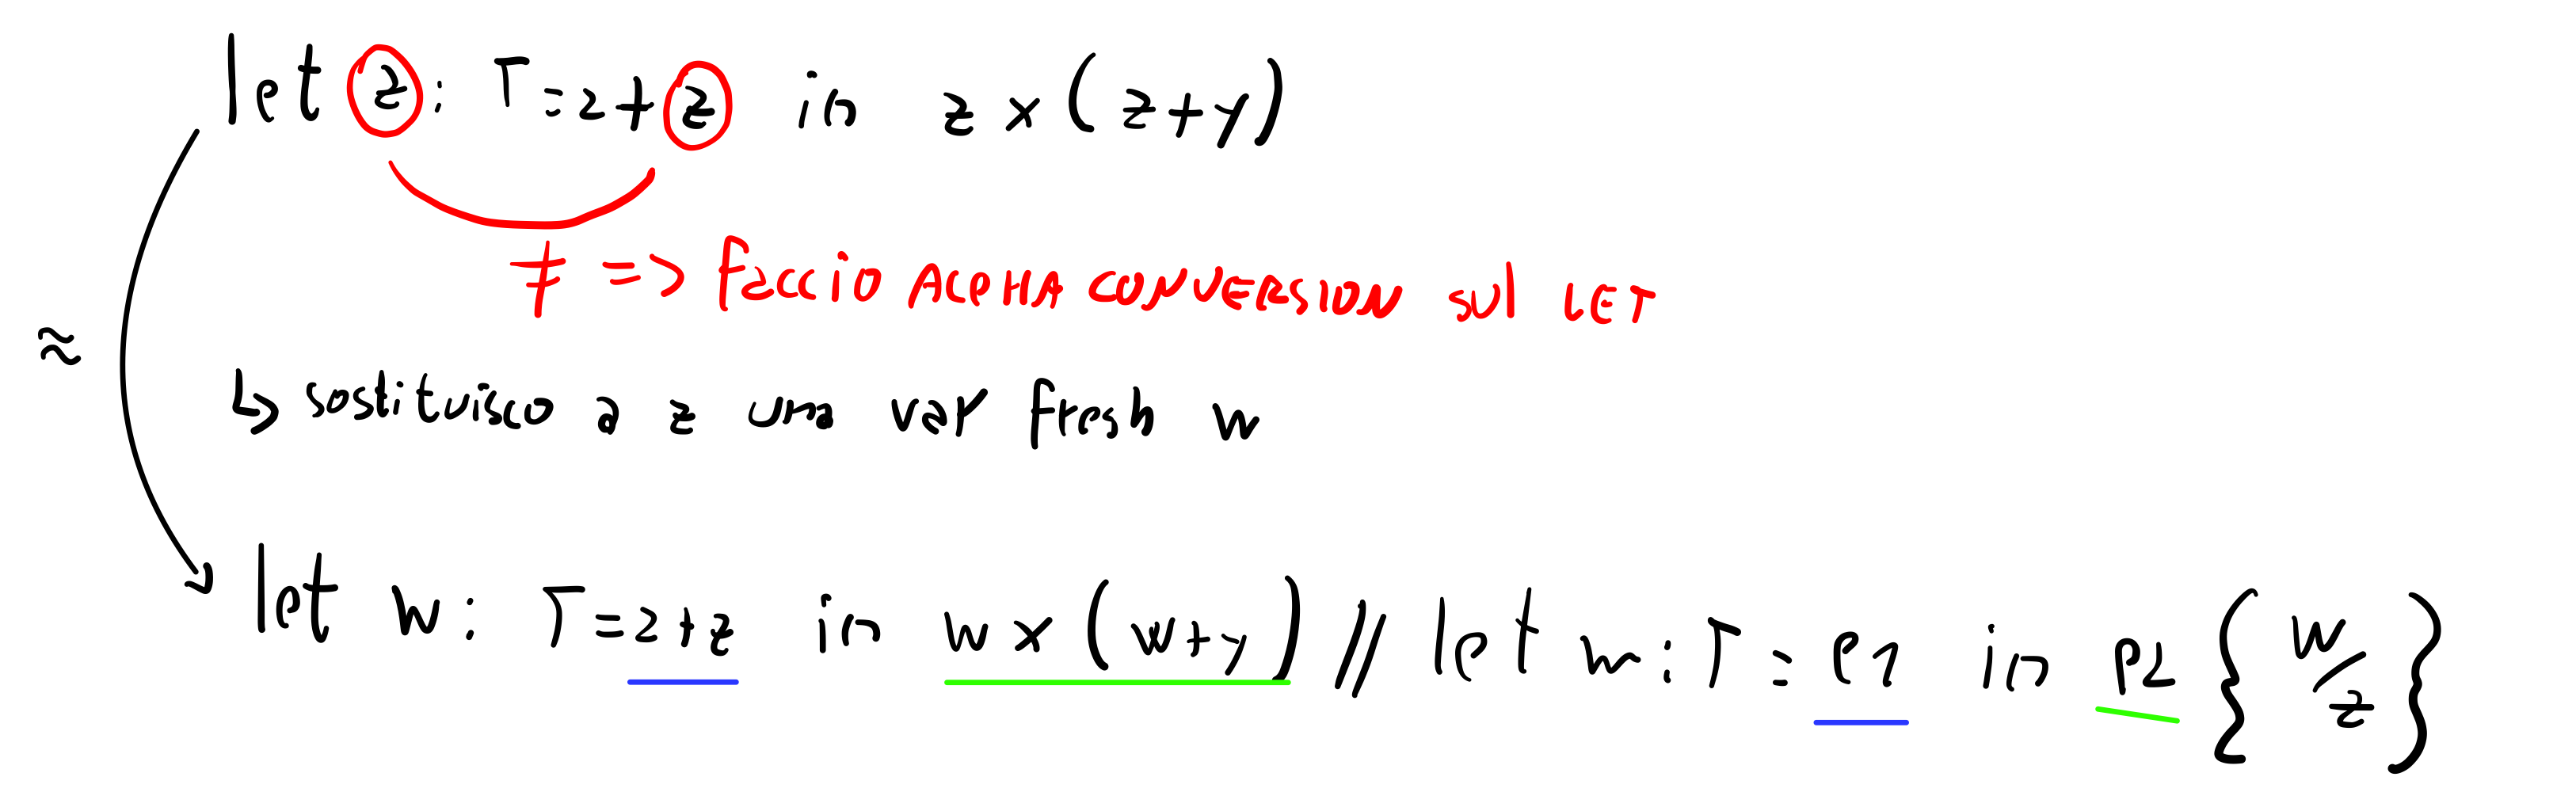 let z : T = 2 + z in z × ( z + y )
≠ => faccio ALPHA CONVERSION sul LET
≈
↳ sostituisco a z una var fresh w
let w : T = 2 + z in w × ( w + y ) // let w : T = e1 in e2 { w / z }